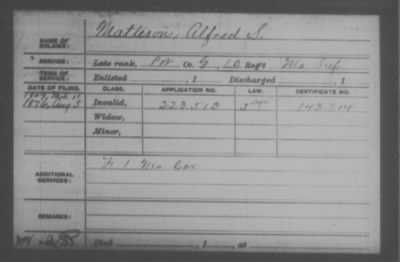 NAME OF SOLDIER: Matteson, Alfred S.
SERVICE: Late rank, Pvt Co. G, 10 Reg't Mo Inf
TERM OF SERVICE: Enlisted , 1 Discharged , 1
DATE OF FILING. CLASS. APPLICATION NO. LAW. CERTIFICATE NO.
1876, Aug 5 Invalid, 223.513 143.314
Widow,
Minor,
ADDITIONAL SERVICES: F 1 Mo. Cav
REMARKS:
Died , 1 , at